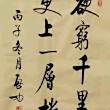 欲窮千里目
更上一層樓
丙子冬月啓功